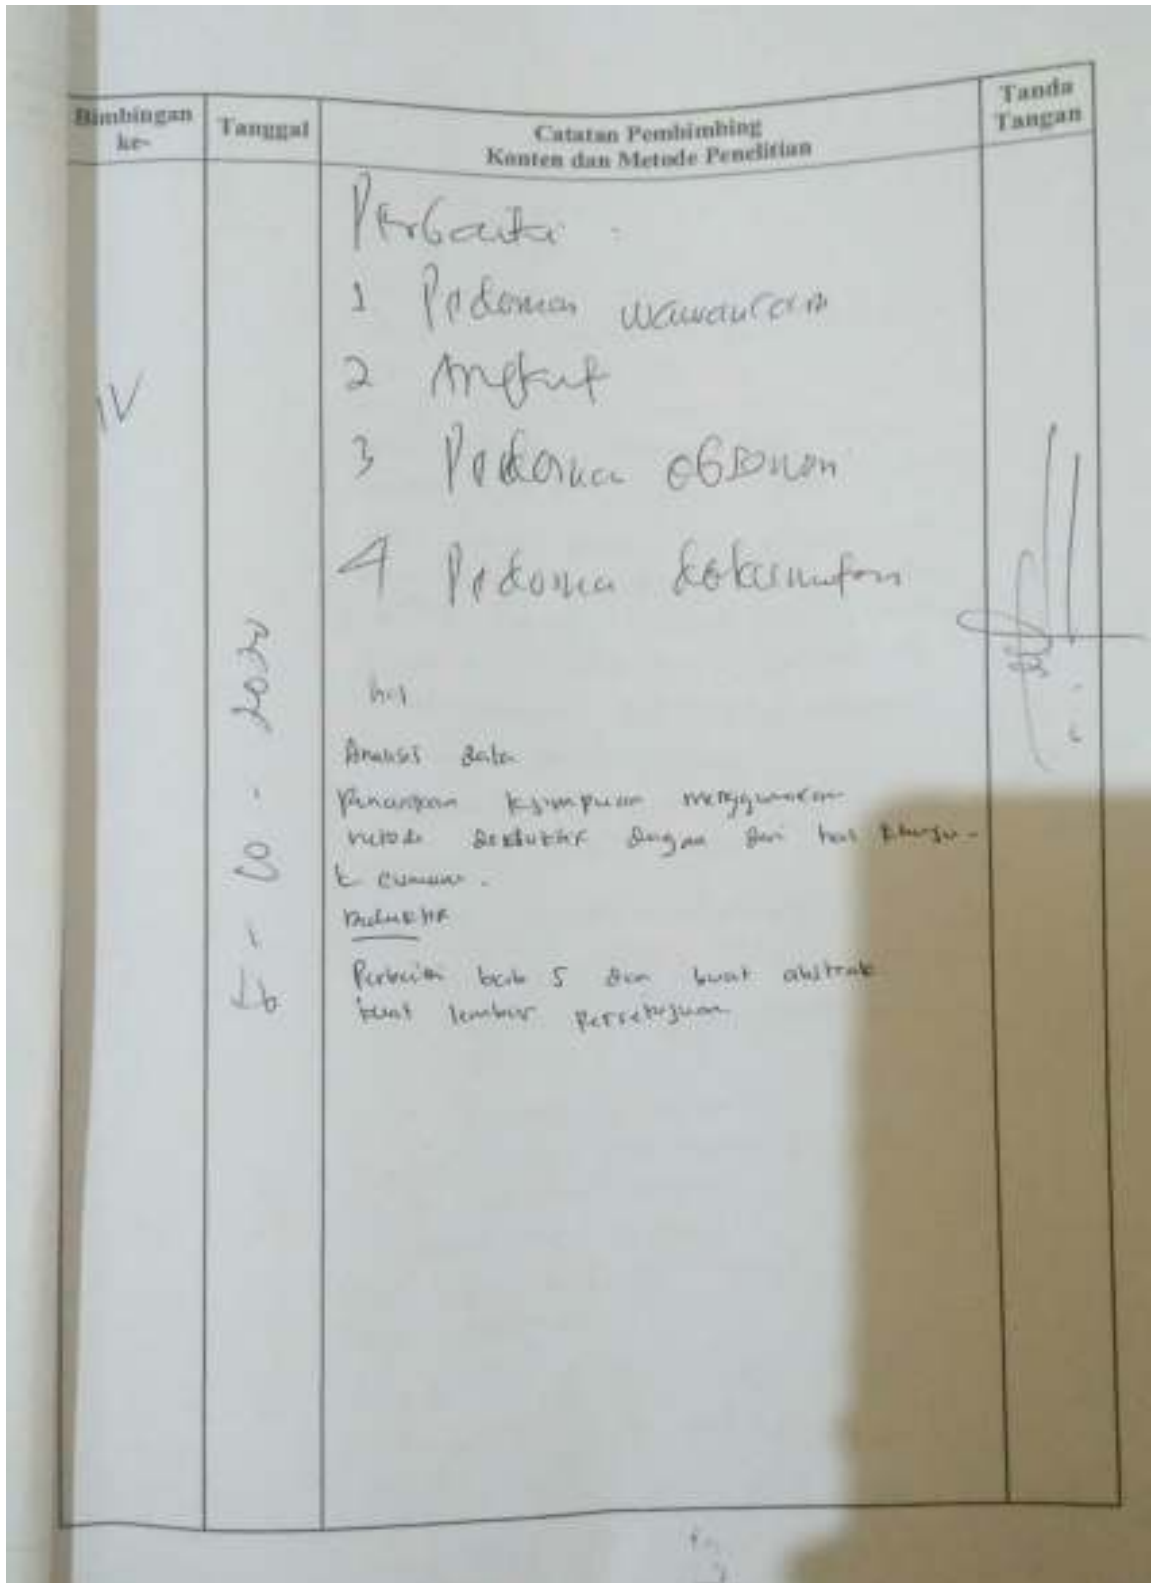 Bimbingan
ke-
Tanggal
Catatan Pembimbing
Konten dan Metode Penelitian
Tanda
Tangan
IV
2020
Perbaiki :
1 Pedoman wawancara
2 Angket
3 Pedoman observasi
4 Pedoman dokumentasi
Analisis data
Penarikan kesimpulan menggunakan
metode dengan dari hal khusus
umum.
Perbaiki bab 5 dan buat abstrak
buat lembar persetujuan